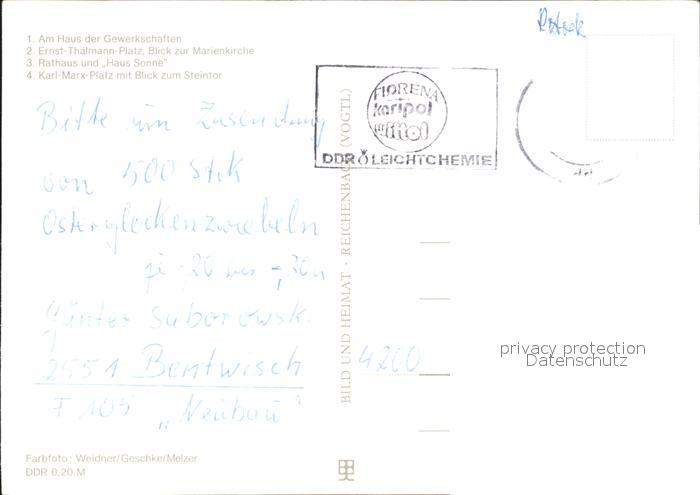 1. Am Haus der Gewerkschaften
2. Ernst-Thälmann-Platz, Blick zur Marienkirche
3. Rathaus und „Haus Sonne"
4. Karl-Marx-Platz mit Blick zum Steintor
FLORENA
Karipol
Wittol
DDR LEICHTCHEMIE
Bitte um Zusendung
von 500 Stck
Osterglockenzwiebeln
Günter Saborowski
2551 Bentwisch
F 105 „Neubau"
BILD UND HEIMAT · REICHENBACH (VOGTL)
4200
privacy protection
Datenschutz
Farbfoto: Weidner/Geschke/Melzer
DDR 0,20 M